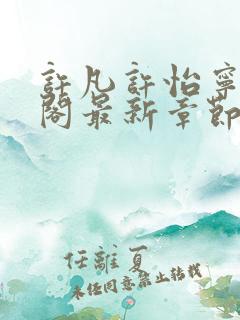 許凡許怡寧
閣最新章節
任離夏
未经同意禁止转载